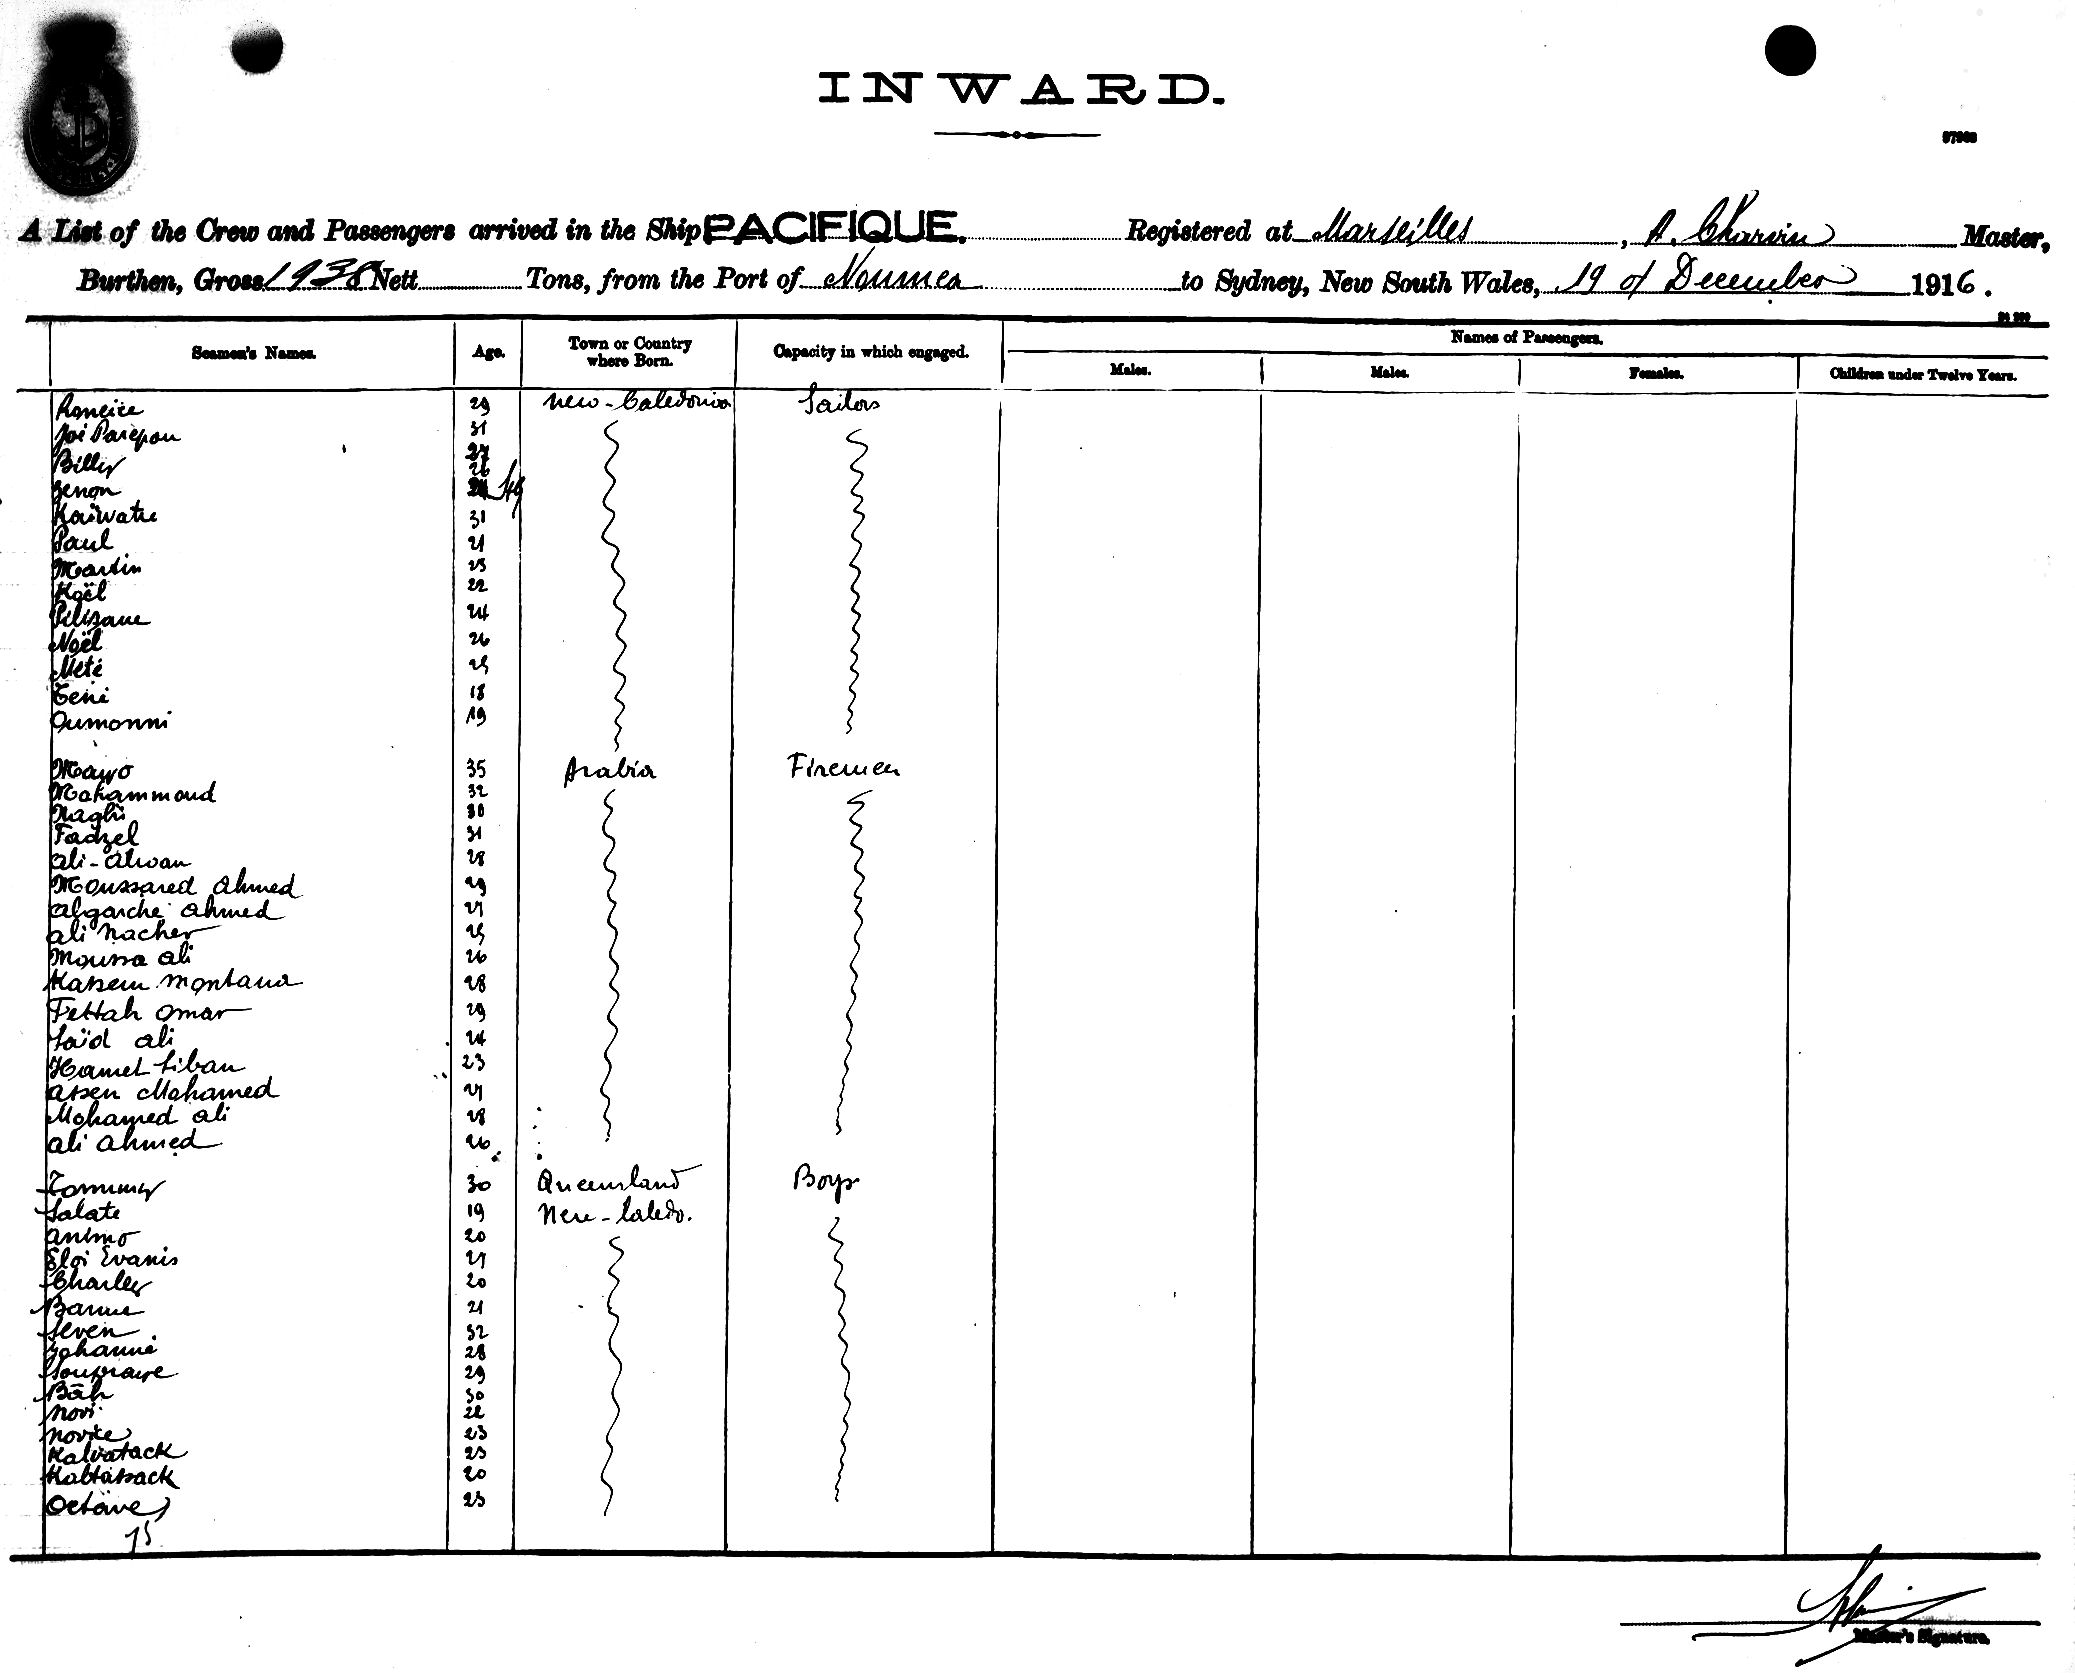 INWARD.
A List of the Crew and Passengers arrived in the Ship PACIFIQUE. Registered at Marseilles, A. Charvin Master,
Burthen, Gross 1938 Nett Tons, from the Port of Noumea to Sydney, New South Wales, 19 of December 1916.
Seamen's Names. Age. Town or Country where Born. Capacity in which engaged. Names of Passengers.
Males. Males. Females. Children under Twelve Years.
29 New-Caledonia Sailors
31
Billy
Zenon
Kaïwatie 31
Paul 21
Martin 23
Koël 22
Pilisane 24
Noël 26
Meté 25
Teni 18
Oumonni 19
Mayo 35 Arabia Firemen
Mohammoud 32
Naghi 30
Fadzel 31
Ali-Alwan 28
Moussared Ahmed 29
Algarche Ahmed 27
Ali Nacher 25
Moussa Ali 26
Kassem Montana 28
Fettah Omar 29
Saïd Ali 24
Hamet Liban 23
Assen Mohamed 27
Mohamed Ali 28
Ali Ahmed 26
Tommy 30 Queensland Boys
Salate 19 New-Caledo.
Animo 20
Eloi Evanis 27
Charley 20
Banne 21
Seven 32
Johanne 28
29
Bâh 30
Novi 22
Novice 23
Kalvatack 23
Kaltatsack 20
Octave 23
Master's Signature.